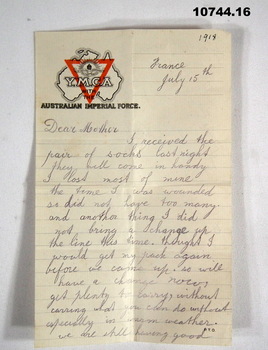 10744.16
1918
France
July 15th
Y.M.C.A
AUSTRALIAN IMPERIAL FORCE.
Dear Mother
I received the
pair of socks last night
they will come in handy
I lost most of mine
the time I was wounded
so did not have too many.
and another thing I did
not bring a change up
the line this time. thought I
would get my pack again
before we came up. so will
have a change now,
get plenty to carry, without
carring what you can do without
especially in warm weather.
PTO
we are still having good